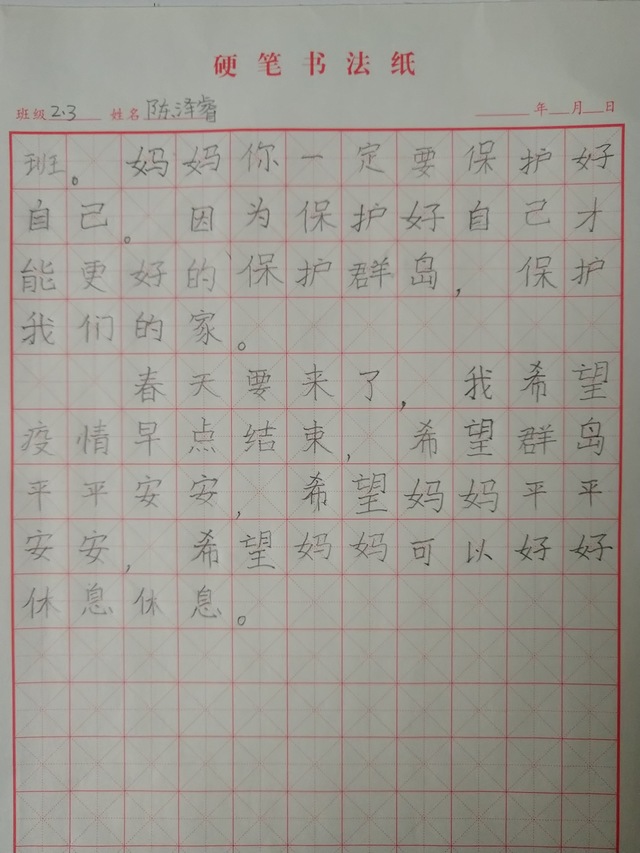 硬笔书法纸
班级2.3 姓名陈泽睿 年 月 日
班。妈妈你一定要保护好
自己。因为保护好自己才
能更好的保护群岛，保护
我们的家。
春天要来了，我希望
疫情早点结束，希望群岛
平平安安，希望妈妈平平
安安，希望妈妈可以好好
休息休息。